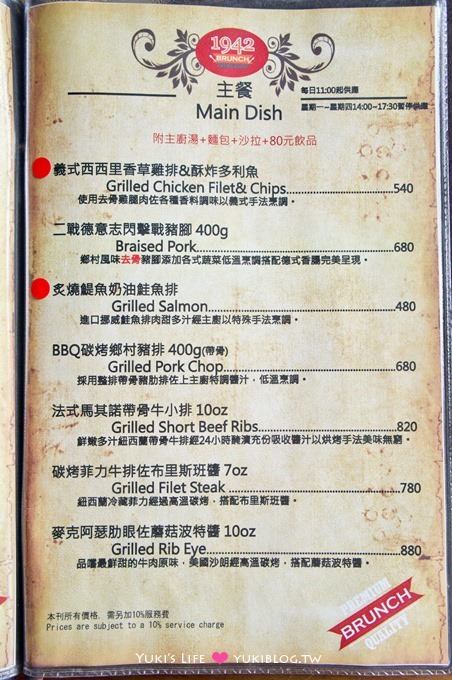 1942
BRUNCH
主餐
Main Dish
每日11:00起供應
星期一~星期四14:00~17:30暫停供應
附主廚湯+麵包+沙拉+80元飲品
義式西西里香草雞排&酥炸多利魚
Grilled Chicken Filet& Chips 540
使用去骨雞腿肉佐各種香料調味以義式手法烹調。
二戰德意志閃擊戰豬腳 400g
Braised Pork 680
鄉村風味去骨豬腳添加各式蔬菜低溫烹調搭配德式香腸完美呈現。
炙燒鯷魚奶油鮭魚排
Grilled Salmon 480
進口挪威鮭魚排肉甜多汁經主廚以特殊手法烹調。
BBQ碳烤鄉村豬排 400g(帶骨)
Grilled Pork Chop 680
採用整排帶骨豬肋排佐上主廚特調醬汁，低溫烹調。
法式馬其諾帶骨牛小排 10oz
Grilled Short Beef Ribs 820
鮮嫩多汁紐西蘭帶骨牛排經24小時醃漬充份吸收醬汁以烘烤手法美味無窮。
碳烤菲力牛排佐布里斯班醬 7oz
Grilled Filet Steak 780
紐西蘭冷藏菲力經過高溫碳烤，搭配布里斯班醬。
麥克阿瑟肋眼佐蘑菇波特醬 10oz
Grilled Rib Eye 880
品嚐最鮮甜的牛肉原味，美國沙朗經高溫碳烤，搭配蘑菇波特醬。
本刊所有價格，需另加10%服務費
Prices are subject to a 10% service charge
PREMIUM
BRUNCH
QUALITY
YUKI'S LIFE ❤ YUKIBLOG.TW